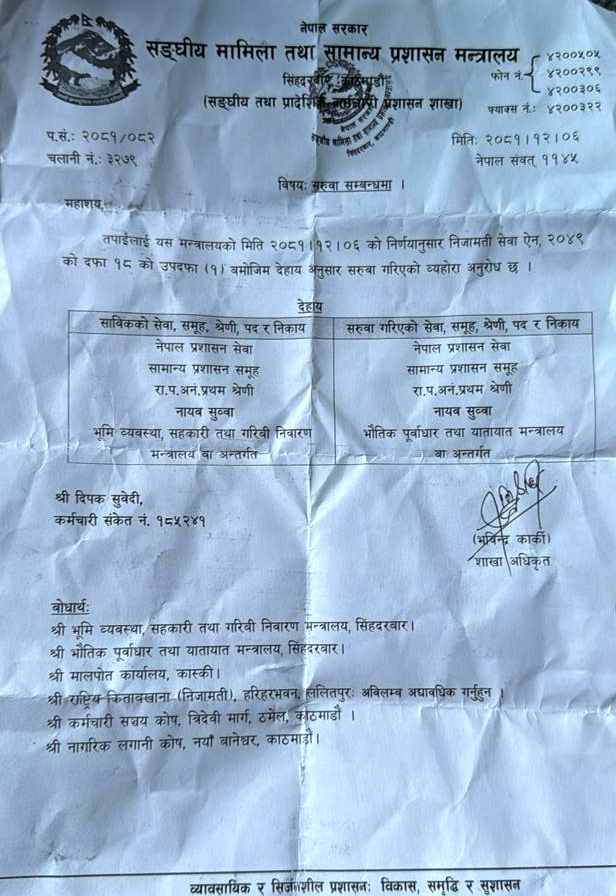 नेपाल सरकार
सङ्घीय मामिला तथा सामान्य प्रशासन मन्त्रालय
सिंहदरबार, काठमाडौं
(सङ्घीय तथा प्रादेशिक कर्मचारी प्रशासन शाखा)
फोन नं. ४२००५०५
४२००२९९
४२००३०६
फ्याक्स नं.: ४२००३२२
प.सं.: २०८१/०८२
चलानी नं.: ३२७९
मितिः २०८१।१२।०६
नेपाल संवत् ११४५
विषयः सरुवा सम्बन्धमा ।
महाशय,
तपाईंलाई यस मन्त्रालयको मिति २०८१।१२।०६ को निर्णयानुसार निजामती सेवा ऐन, २०४९
को दफा १८ को उपदफा (१) बमोजिम देहाय अनुसार सरुवा गरिएको व्यहोरा अनुरोध छ ।
देहाय
साविकको सेवा, समूह, श्रेणी, पद र निकाय
नेपाल प्रशासन सेवा
सामान्य प्रशासन समूह
रा.प.अनं.प्रथम श्रेणी
नायव सुब्बा
भूमि व्यवस्था, सहकारी तथा गरिवी निवारण
मन्त्रालय वा अन्तर्गत
सरुवा गरिएको सेवा, समूह, श्रेणी, पद र निकाय
नेपाल प्रशासन सेवा
सामान्य प्रशासन समूह
रा.प.अनं.प्रथम श्रेणी
नायव सुब्बा
भौतिक पूर्वाधार तथा यातायात मन्त्रालय
वा अन्तर्गत
श्री दिपक सुवेदी,
कर्मचारी संकेत नं. १८५२४१
(भविन्द्र कार्की)
शाखा अधिकृत
बोधार्थः
श्री भूमि व्यवस्था, सहकारी तथा गरिवी निवारण मन्त्रालय, सिंहदरबार।
श्री भौतिक पूर्वाधार तथा यातायात मन्त्रालय, सिंहदरबार।
श्री मालपोत कार्यालय, कास्की।
श्री राष्ट्रिय कितावखाना (निजामती), हरिहरभवन, ललितपुरः अविलम्ब अद्यावधिक गर्नुहुन ।
श्री कर्मचारी सञ्चय कोष, त्रिदेवी मार्ग, ठमेल, काठमाडौं ।
श्री नागरिक लगानी कोष, नयाँ बानेश्वर, काठमाडौं।
व्यावसायिक र सिर्जनशील प्रशासनः विकास, समृद्धि र सुशासन